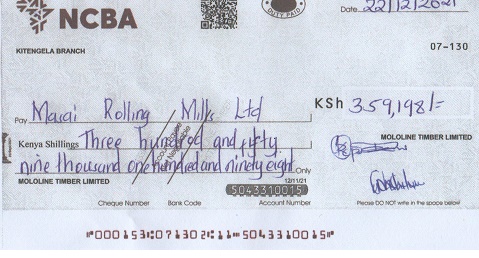 NCBA
ONLY PAID
Date 22/12/2021
KITENGELA BRANCH
07-130
Pay Masai Rolling Mills Ltd
KSh 359,198/=
Kenya Shillings Three hundred and fifty
nine thousand one hundred and ninety eight Only
MOLOLINE TIMBER LIMITED
MOLOLINE TIMBER LIMITED
12/11/21
5043310015
Cheque Number Bank Code Account Number
Please DO NOT write in the space below
⑈000153⑆071302⑆11⑉5043310015⑈